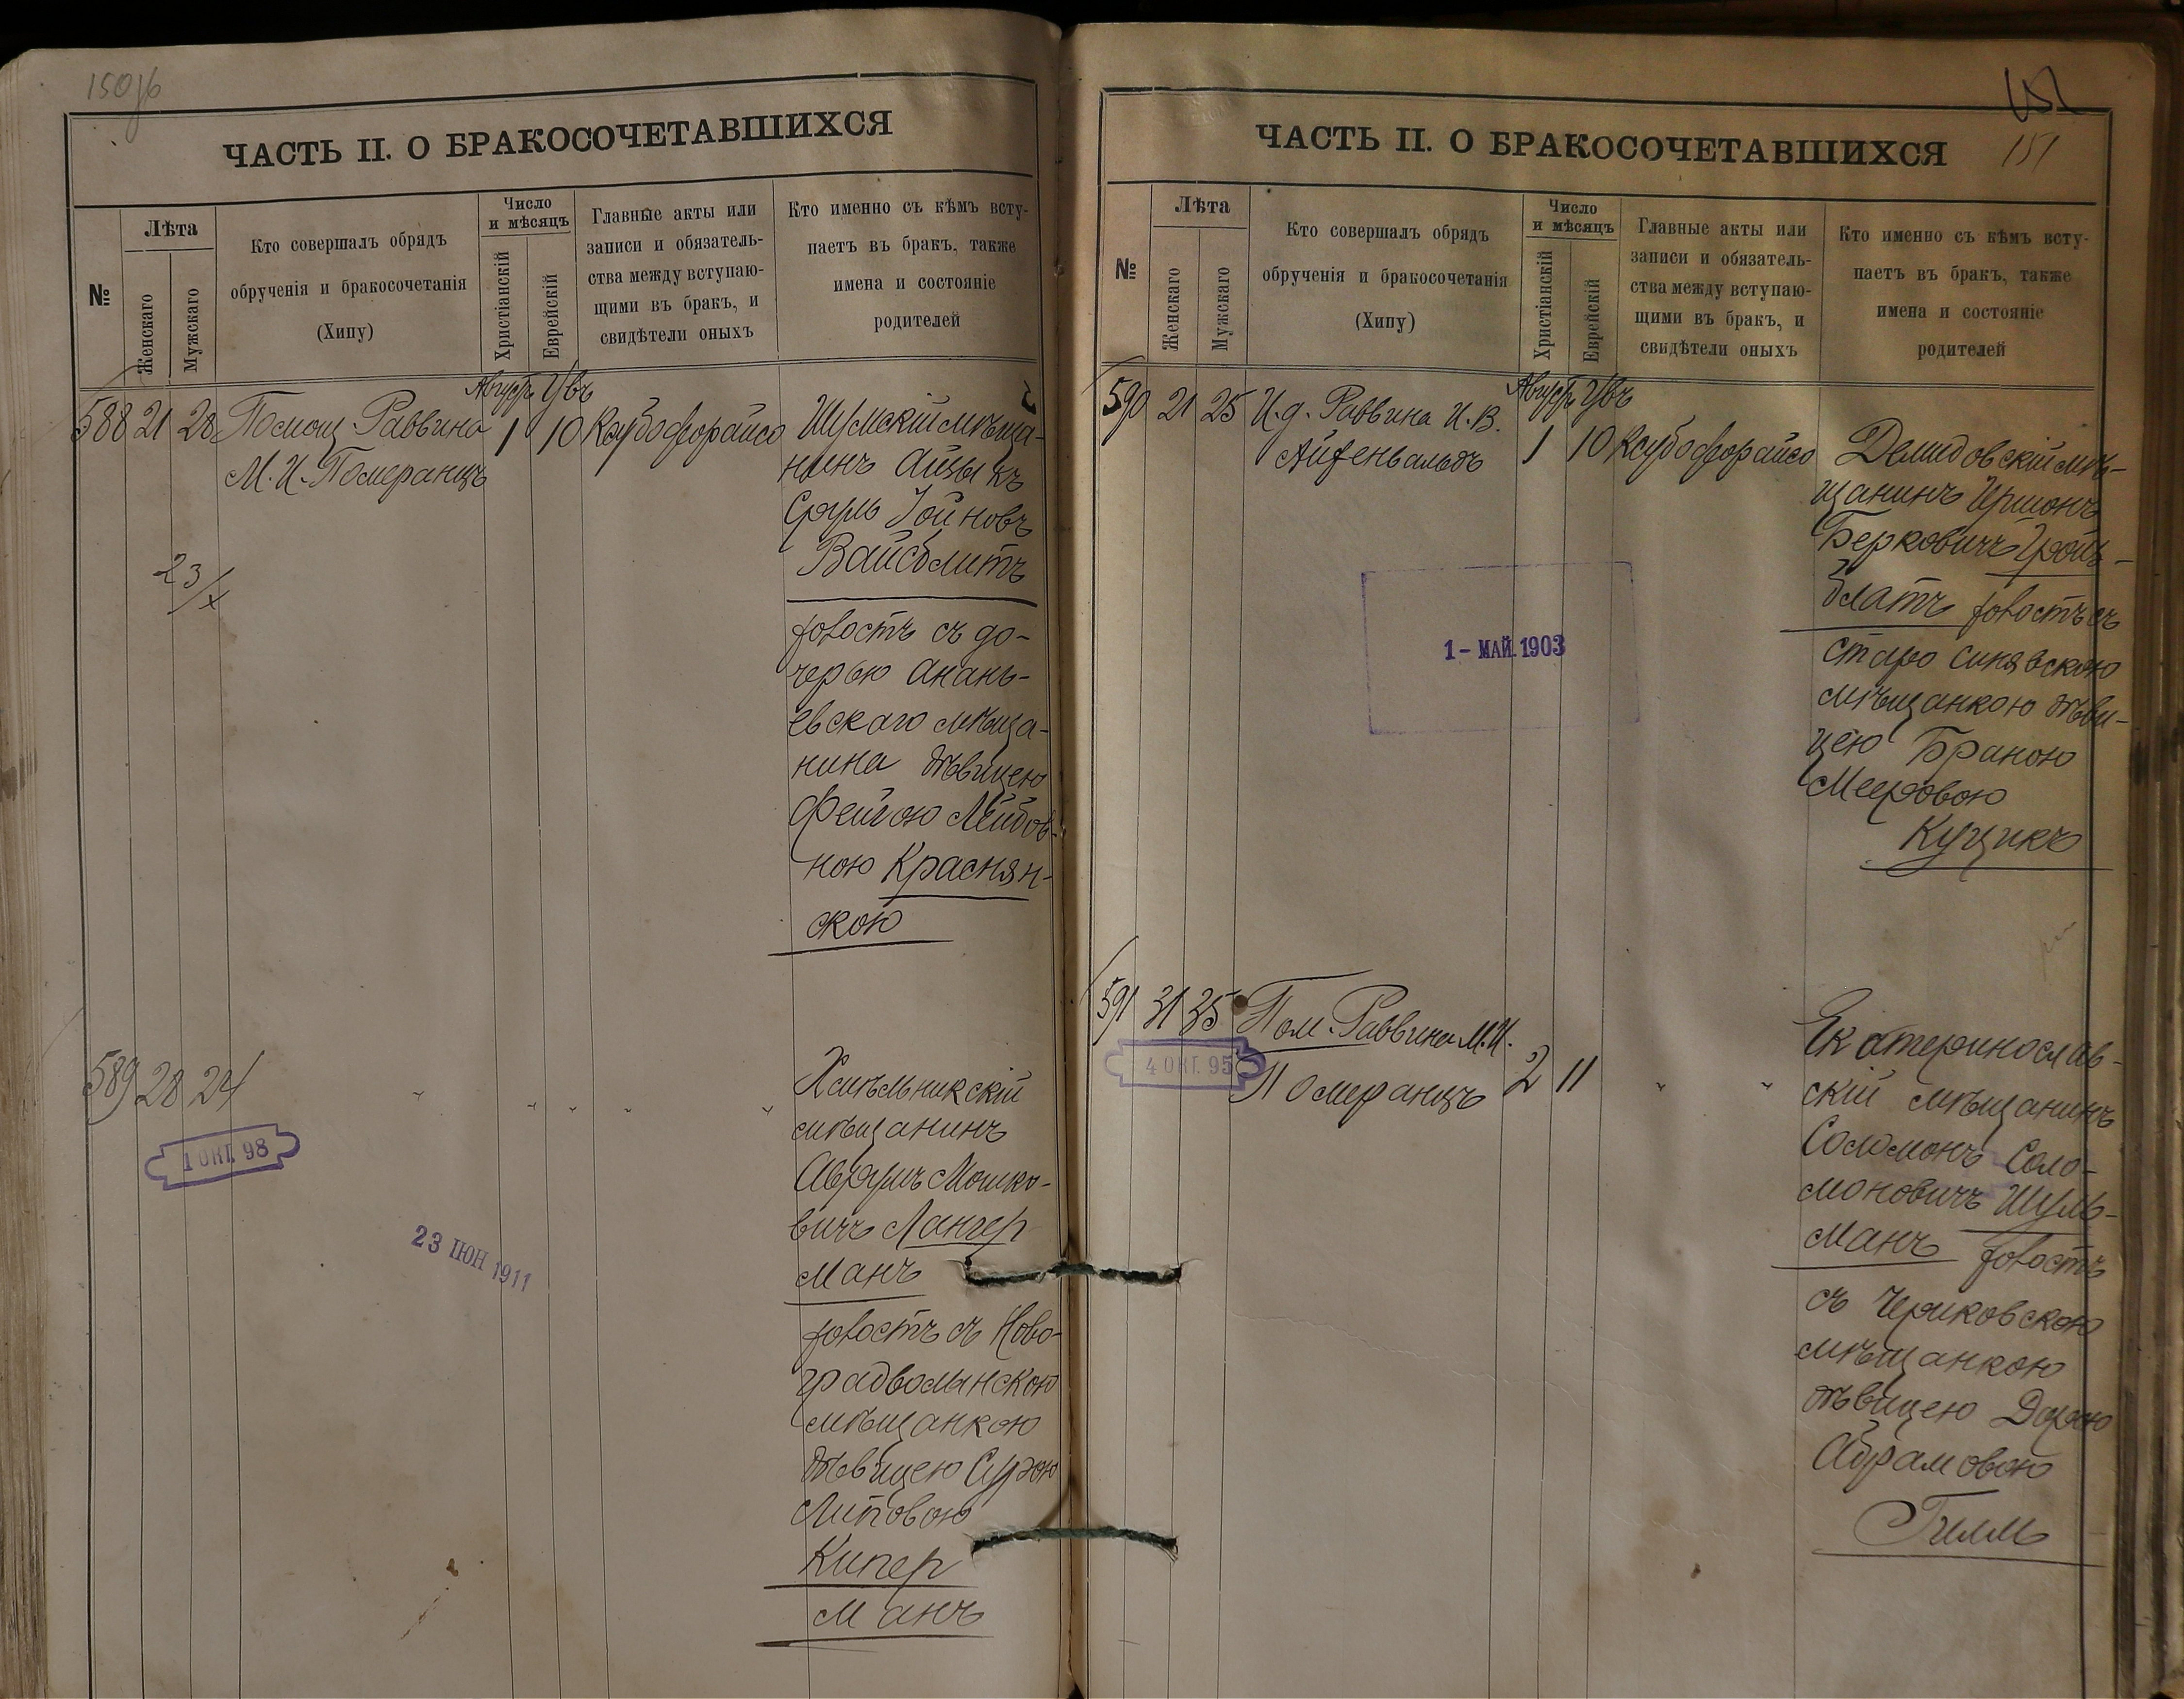 150 об
ЧАСТЬ II. О БРАКОСОЧЕТАВШИХСЯ
№
Лѣта
Женскаго
Мужскаго
Кто совершалъ обрядъ
обрученія и бракосочетанія
(Хипу)
Число
и мѣсяцъ
Христіанскій
Еврейскій
Главные акты или
записи и обязатель-
ства между вступаю-
щими въ бракъ, и
свидѣтели оныхъ
Кто именно съ кѣмъ всту-
паетъ въ бракъ, также
имена и состояніе
родителей
Августъ
588 21 28 Помощ. Раввина 1 10
М. И. Померанцъ
23/X
Шумскій мѣща-
нинъ Айзыкъ
Сруль Іойновъ
Вайсблитъ
холостъ съ до-
черью Анань-
евскаго мѣща-
нина дѣвицею
Фейгою Лейбов-
ною Краснян-
скою
589 28 24 " " " " "
1 ОКТ. 98
23 ІЮН 1911
Хмѣльникскій
мѣщанинъ
Аврумъ Мошко-
вичъ Лангер
манъ
холостъ съ Ново-
градволынскою
мѣщанкою
дѣвицею Сурою
Липовою
Кипер
манъ
151
151
ЧАСТЬ II. О БРАКОСОЧЕТАВШИХСЯ
№
Лѣта
Женскаго
Мужскаго
Кто совершалъ обрядъ
обрученія и бракосочетанія
(Хипу)
Число
и мѣсяцъ
Христіанскій
Еврейскій
Главные акты или
записи и обязатель-
ства между вступаю-
щими въ бракъ, и
свидѣтели оныхъ
Кто именно съ кѣмъ всту-
паетъ въ бракъ, также
имена и состояніе
родителей
Августъ
590 21 25 И. д. Раввина И. В. 1 10
Айзенвальдъ
1 - МАЙ. 1903
Демидовскій мѣ-
щанинъ Иршонъ
Берковичъ Гройс-
блатъ холостъ съ
старо синявскою
мѣщанкою дѣви-
цею Браною
Мееровою
Куцикъ
591 31 35 Пом. Раввина М. И.
Померанцъ 2 11 " "
4 ОКТ. 95
Екатеринослав-
скій мѣщанинъ
Соломонъ Соло-
моновичъ Шуль-
манъ холостъ
съ Чериковскою
мѣщанкою
дѣвицею Дорою
Абрамовою
Гилль